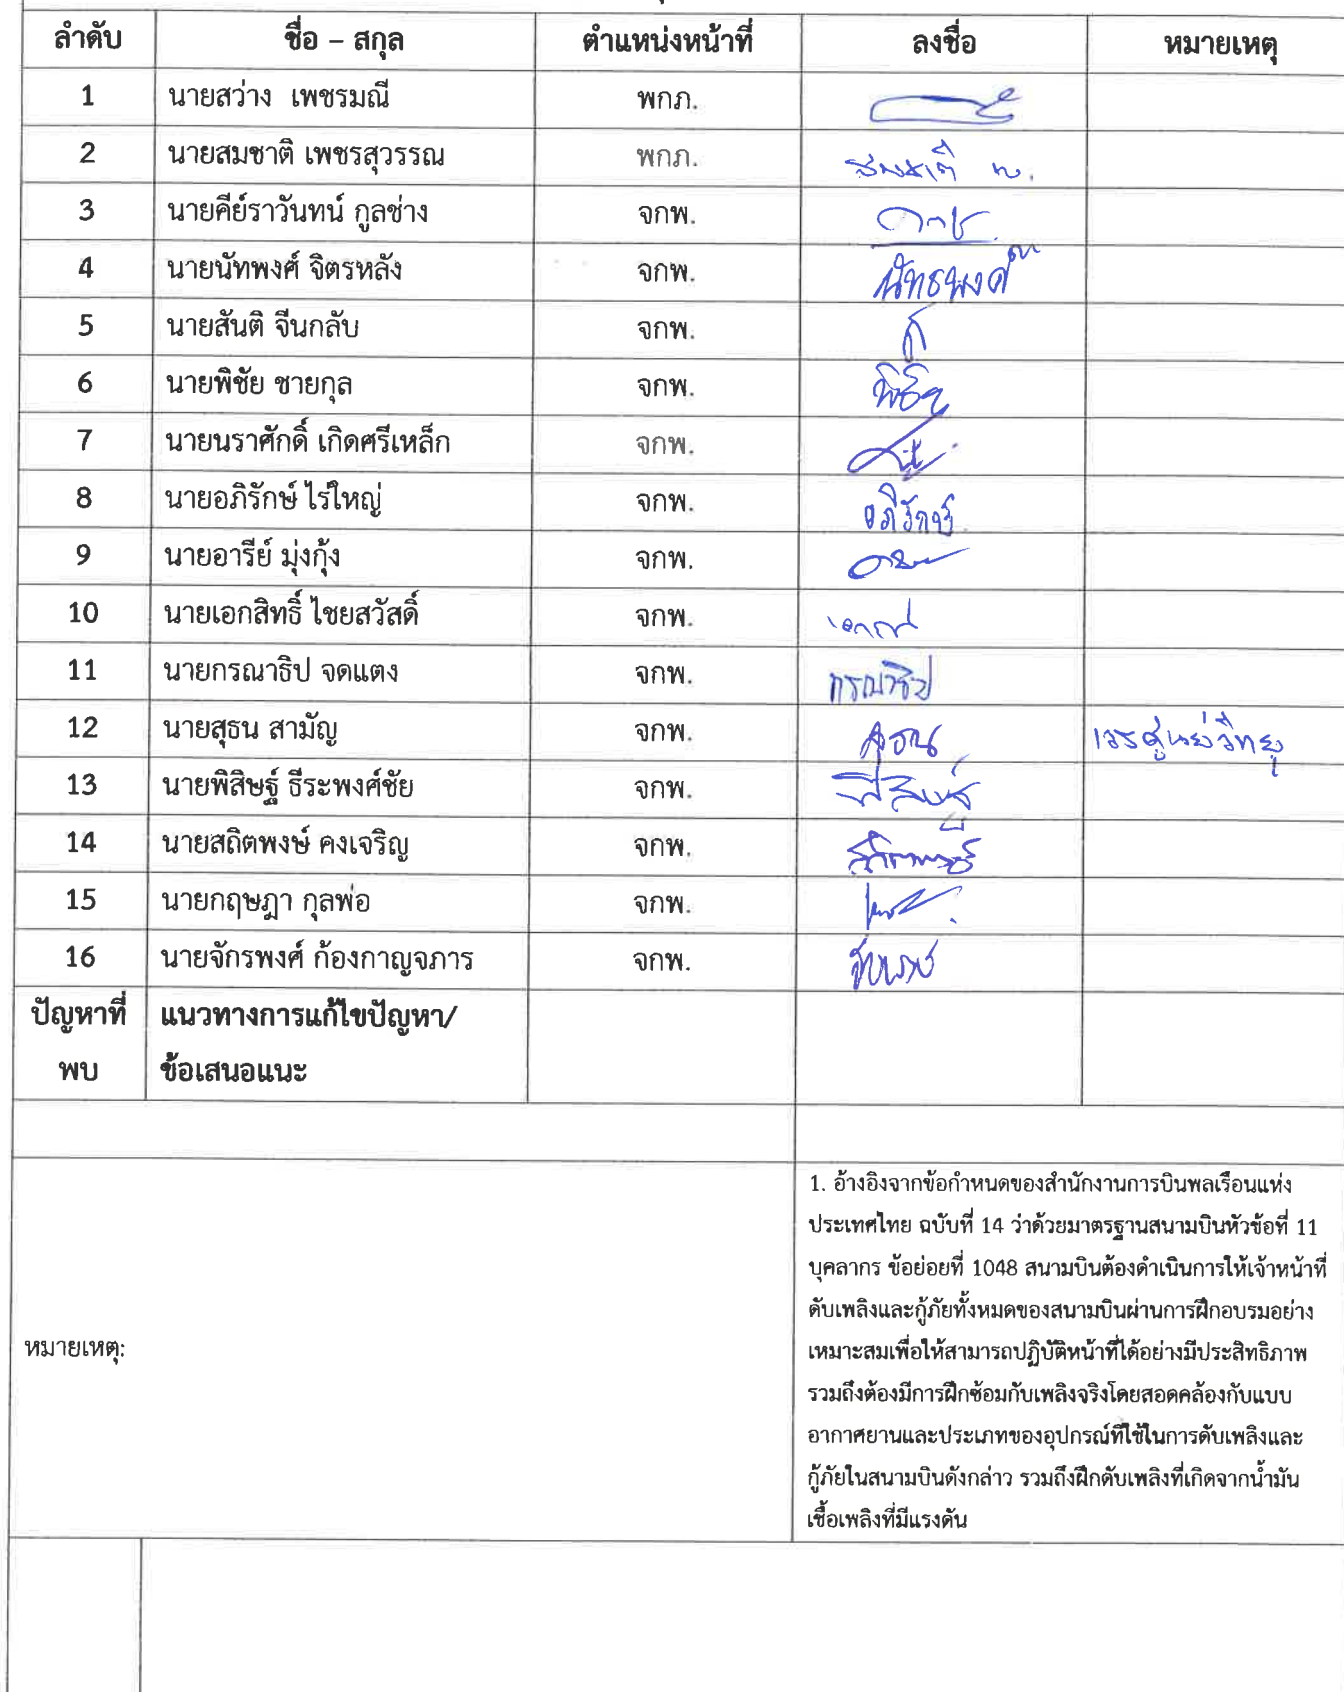 ลำดับ ชื่อ – สกุล ตำแหน่งหน้าที่ ลงชื่อ หมายเหตุ
1 นายสว่าง เพชรมณี พกภ.
2 นายสมชาติ เพชรสุวรรณ พกภ. สมชาติ พ.
3 นายคีย์ราวันทน์ กูลช่าง จกพ.
4 นายนัทพงศ์ จิตรหลัง จกพ. นัทธพงศ์
5 นายสันติ จีนกลับ จกพ.
6 นายพิชัย ชายกุล จกพ. พิชัย
7 นายนราศักดิ์ เกิดศรีเหล็ก จกพ.
8 นายอภิรักษ์ ไร่ใหญ่ จกพ. อภิรักษ์
9 นายอารีย์ มุ่งกุ้ง จกพ.
10 นายเอกสิทธิ์ ไชยสวัสดิ์ จกพ.
11 นายกรณาธิป จดแตง จกพ. กรณาธิป
12 นายสุธน สามัญ จกพ. สุธน เวรศูนย์วิทยุ
13 นายพิสิษฐ์ ธีระพงศ์ชัย จกพ. พิสิษฐ์
14 นายสถิตพงษ์ คงเจริญ จกพ. สถิตพงษ์
15 นายกฤษฎา กุลพ่อ จกพ.
16 นายจักรพงศ์ ก้องกาญจภาร จกพ.
ปัญหาที่ แนวทางการแก้ไขปัญหา/
พบ ข้อเสนอแนะ
หมายเหตุ:
1. อ้างอิงจากข้อกำหนดของสำนักงานการบินพลเรือนแห่ง
ประเทศไทย ฉบับที่ 14 ว่าด้วยมาตรฐานสนามบินหัวข้อที่ 11
บุคลากร ข้อย่อยที่ 1048 สนามบินต้องดำเนินการให้เจ้าหน้าที่
ดับเพลิงและกู้ภัยทั้งหมดของสนามบินผ่านการฝึกอบรมอย่าง
เหมาะสมเพื่อให้สามารถปฏิบัติหน้าที่ได้อย่างมีประสิทธิภาพ
รวมถึงต้องมีการฝึกซ้อมกับเพลิงจริงโดยสอดคล้องกับแบบ
อากาศยานและประเภทของอุปกรณ์ที่ใช้ในการดับเพลิงและ
กู้ภัยในสนามบินดังกล่าว รวมถึงฝึกดับเพลิงที่เกิดจากน้ำมัน
เชื้อเพลิงที่มีแรงดัน